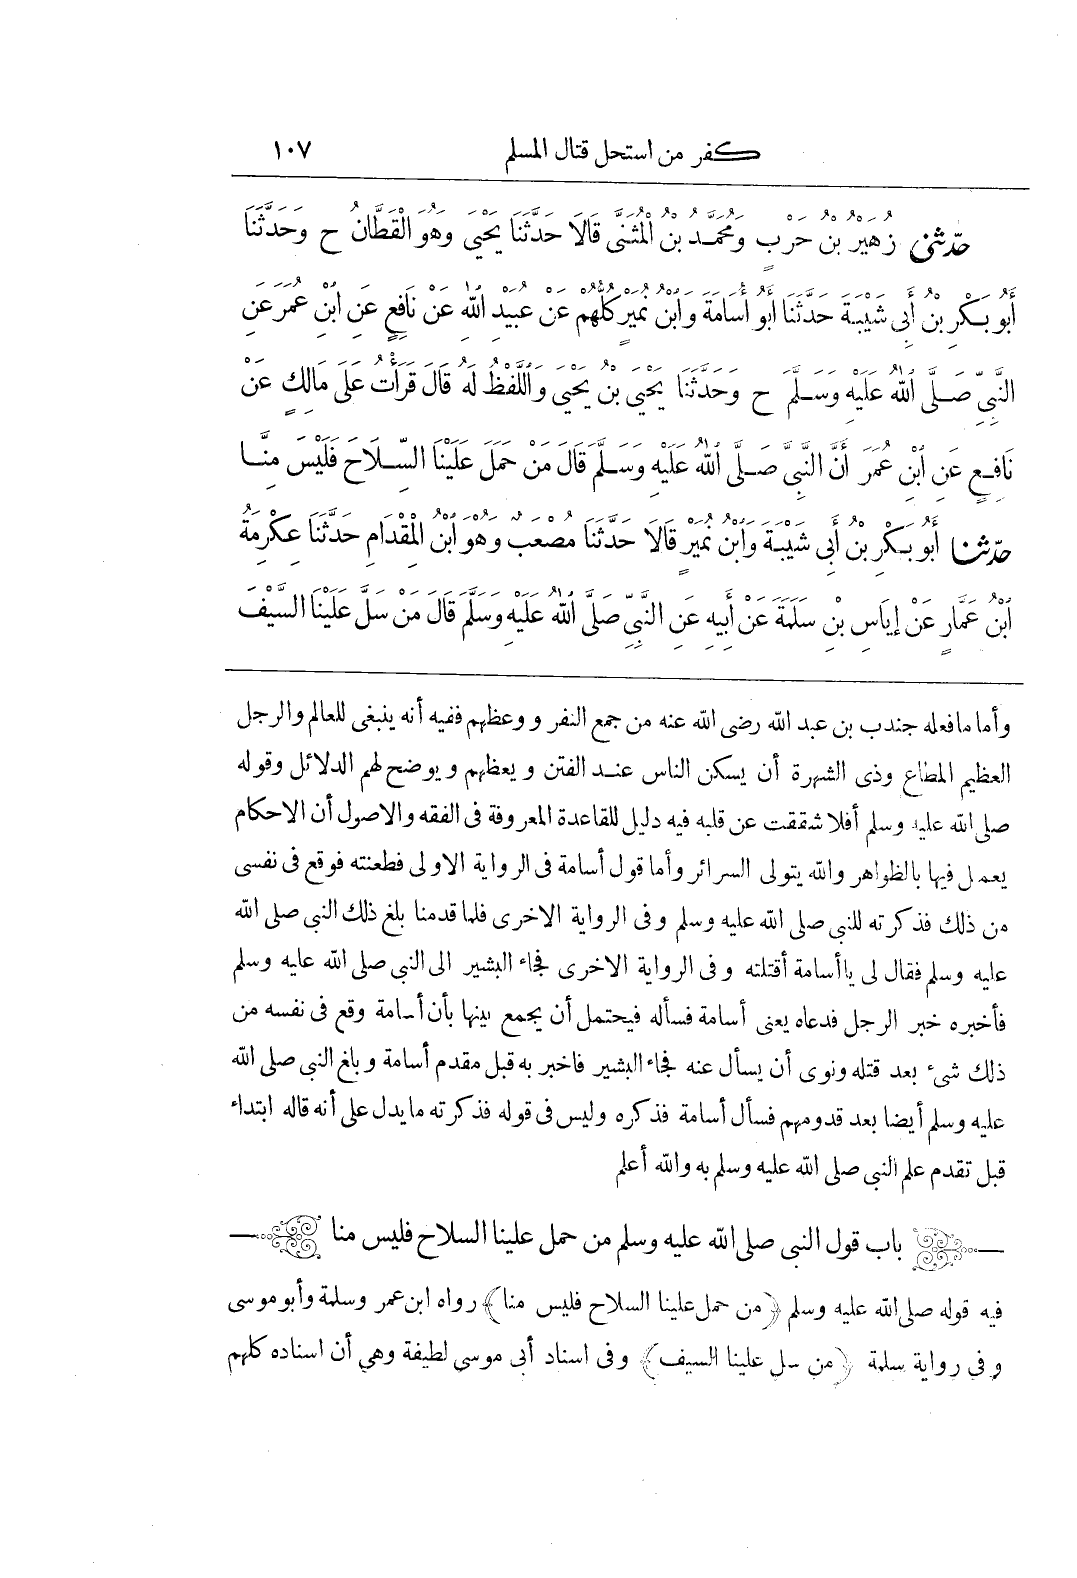 كفر من استحل قتال المسلم ١٠٧
حدّثنى زُهَيْرُ بْنُ حَرْبٍ وَمُحَمَّدُ بْنُ الْمُثَنَّى قَالَا حَدَّثَنَا يَحْيَى وَهُوَ الْقَطَّانُ ح وَحَدَّثَنَا
أَبُو بَكْرِ بْنُ أَبِى شَيْبَةَ حَدَّثَنَا أَبُو أُسَامَةَ وَابْنُ نُمَيْرٍ كُلُّهُمْ عَنْ عُبَيْدِ اللهِ عَنْ نَافِعٍ عَنِ ابْنِ عُمَرَ عَنِ
النَّبِىِّ صَلَّى اللهُ عَلَيْهِ وَسَلَّمَ ح وَحَدَّثَنَا يَحْيَى بْنُ يَحْيَى وَاللَّفْظُ لَهُ قَالَ قَرَأْتُ عَلَى مَالِكٍ عَنْ
نَافِعٍ عَنِ ابْنِ عُمَرَ أَنَّ النَّبِىَّ صَلَّى اللهُ عَلَيْهِ وَسَلَّمَ قَالَ مَنْ حَمَلَ عَلَيْنَا السِّلَاحَ فَلَيْسَ مِنَّا
حدّثنا أَبُو بَكْرِ بْنُ أَبِى شَيْبَةَ وَابْنُ نُمَيْرٍ قَالَا حَدَّثَنَا مُصْعَبٌ وَهُوَ ابْنُ الْمِقْدَامِ حَدَّثَنَا عِكْرِمَةُ
ابْنُ عَمَّارٍ عَنْ إِيَاسِ بْنِ سَلَمَةَ عَنْ أَبِيهِ عَنِ النَّبِىِّ صَلَّى اللهُ عَلَيْهِ وَسَلَّمَ قَالَ مَنْ سَلَّ عَلَيْنَا السَّيْفَ
وأما مافعله جندب بن عبد الله رضى الله عنه من جمع النفر ووعظهم ففيه أنه ينبغى للعالم والرجل
العظيم المطاع وذى الشهرة أن يسكن الناس عند الفتن ويعظهم ويوضح لهم الدلائل وقوله
صلى الله عليه وسلم أفلا شققت عن قلبه فيه دليل للقاعدة المعروفة فى الفقه والاصول أن الاحكام
يعمل فيها بالظواهر والله يتولى السرائر وأما قول أسامة فى الرواية الاولى فطعنته فوقع فى نفسى
من ذلك فذكرته للنبى صلى الله عليه وسلم وفى الرواية الاخرى فلما قدمنا بلغ ذلك النبى صلى الله
عليه وسلم فقال لى ياأسامة أقتلته وفى الرواية الاخرى فجاء البشير الى النبى صلى الله عليه وسلم
فأخبره خبر الرجل فدعاه يعنى أسامة فسأله فيحتمل أن يجمع بينها بأن أسامة وقع فى نفسه من
ذلك شىء بعد قتله ونوى أن يسأل عنه فجاء البشير فاخبر به قبل مقدم أسامة وبلغ النبى صلى الله
عليه وسلم أيضا بعد قدومهم فسأل أسامة فذكره وليس فى قوله فذكرته مايدل على أنه قاله ابتداء
قبل تقدم علم النبى صلى الله عليه وسلم به والله أعلم
باب قول النبى صلى الله عليه وسلم من حمل علينا السلاح فليس منا
فيه قوله صلى الله عليه وسلم ﴿من حمل علينا السلاح فليس منا﴾ رواه ابن عمر وسلمة وأبوموسى
وفى رواية سلمة ﴿من سل علينا السيف﴾ وفى اسناد أبى موسى لطيفة وهى أن اسناده كلهم